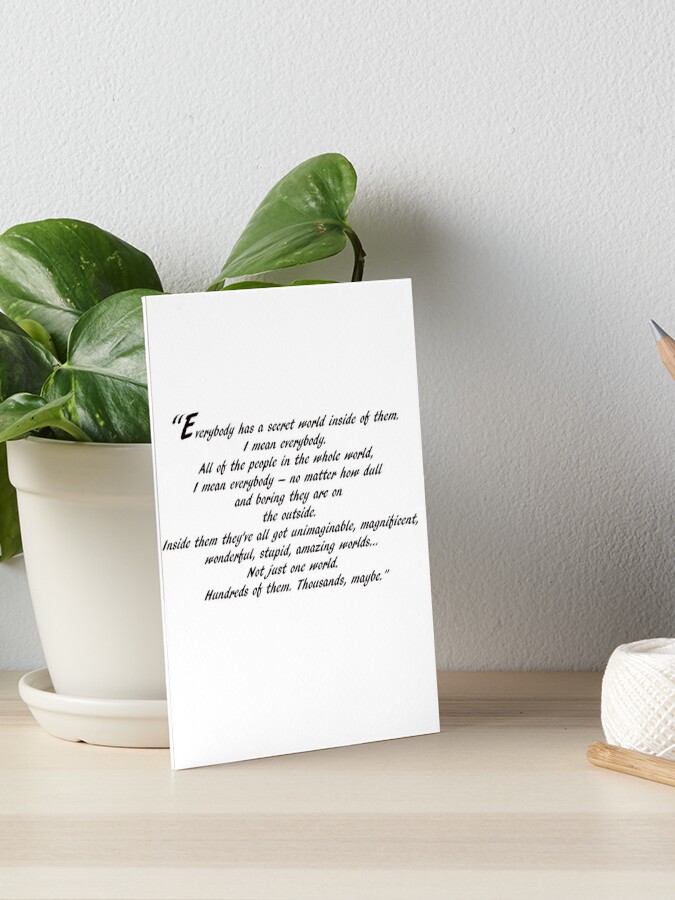 “Everybody has a secret world inside of them.
I mean everybody.
All of the people in the whole world,
I mean everybody – no matter how dull
and boring they are on
the outside.
Inside them they've all got unimaginable, magnificent,
wonderful, stupid, amazing worlds...
Not just one world.
Hundreds of them. Thousands, maybe.”